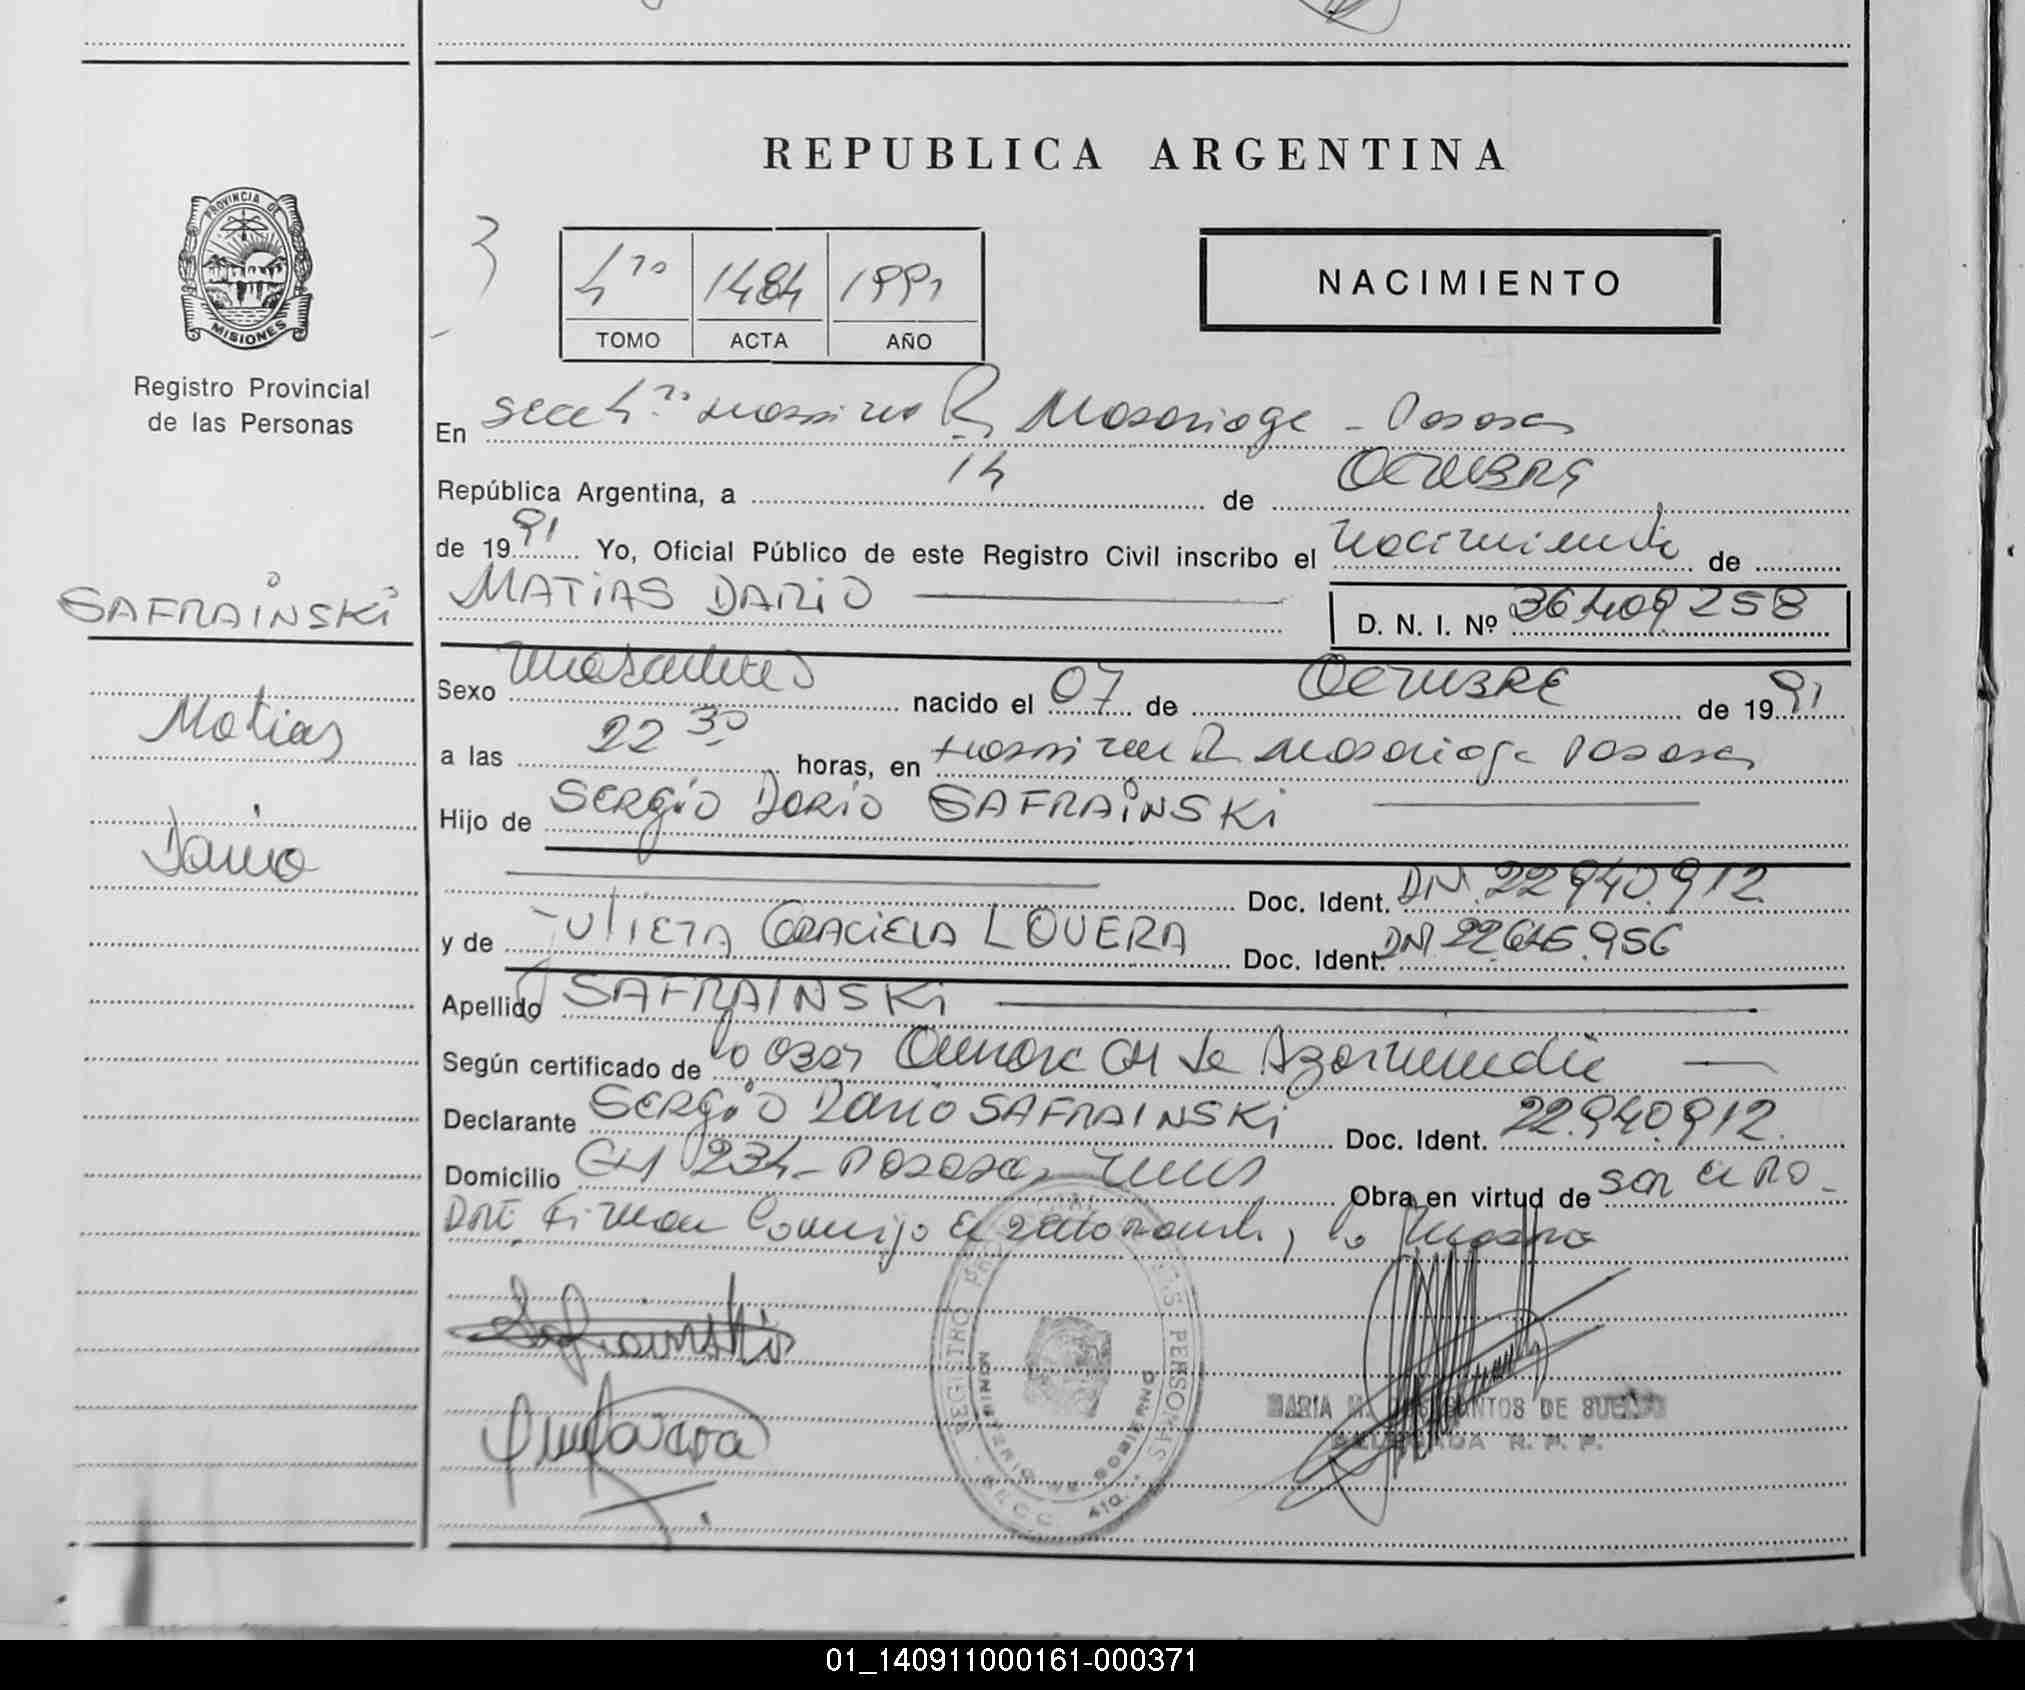 REPUBLICA ARGENTINA
PROVINCIA DE
MISIONES
Registro Provincial
de las Personas
3
4to 1484 1991
TOMO ACTA AÑO
NACIMIENTO
En Secc 4ta Hospital R. Madariaga - Posadas
República Argentina, a 14 de Octubre
de 1991 Yo, Oficial Público de este Registro Civil inscribo el nacimiento de
MATIAS DARIO
D. N. I. Nº 36.409.258
SAFRAINSKI
Matias
Dario
Sexo masculino nacido el 07 de OCTUBRE de 1991
a las 22 30 horas, en Hospital R Madariaga Posadas
Hijo de SERGIO DARIO SAFRAINSKI
Doc. Ident. DNI. 22.940.912
y de JULIETA GRACIELA LOVERA Doc. Ident. DNI 22.645.956
Apellido SAFRAINSKI
Según certificado de la Obst
Declarante SERGIO Dario SAFRAINSKI Doc. Ident. 22.940.912
Domicilio CH 234 - Posadas Obra en virtud de ser el pa-
dre Firman conmigo el declarante, la madre
Safrainski
REGISTRO PERSONAS
MINISTERIO DE GOBIERNO
SECC. 4ta.
MARIA SANTOS DE
DELEGADA R. P. P.
01_140911000161-000371